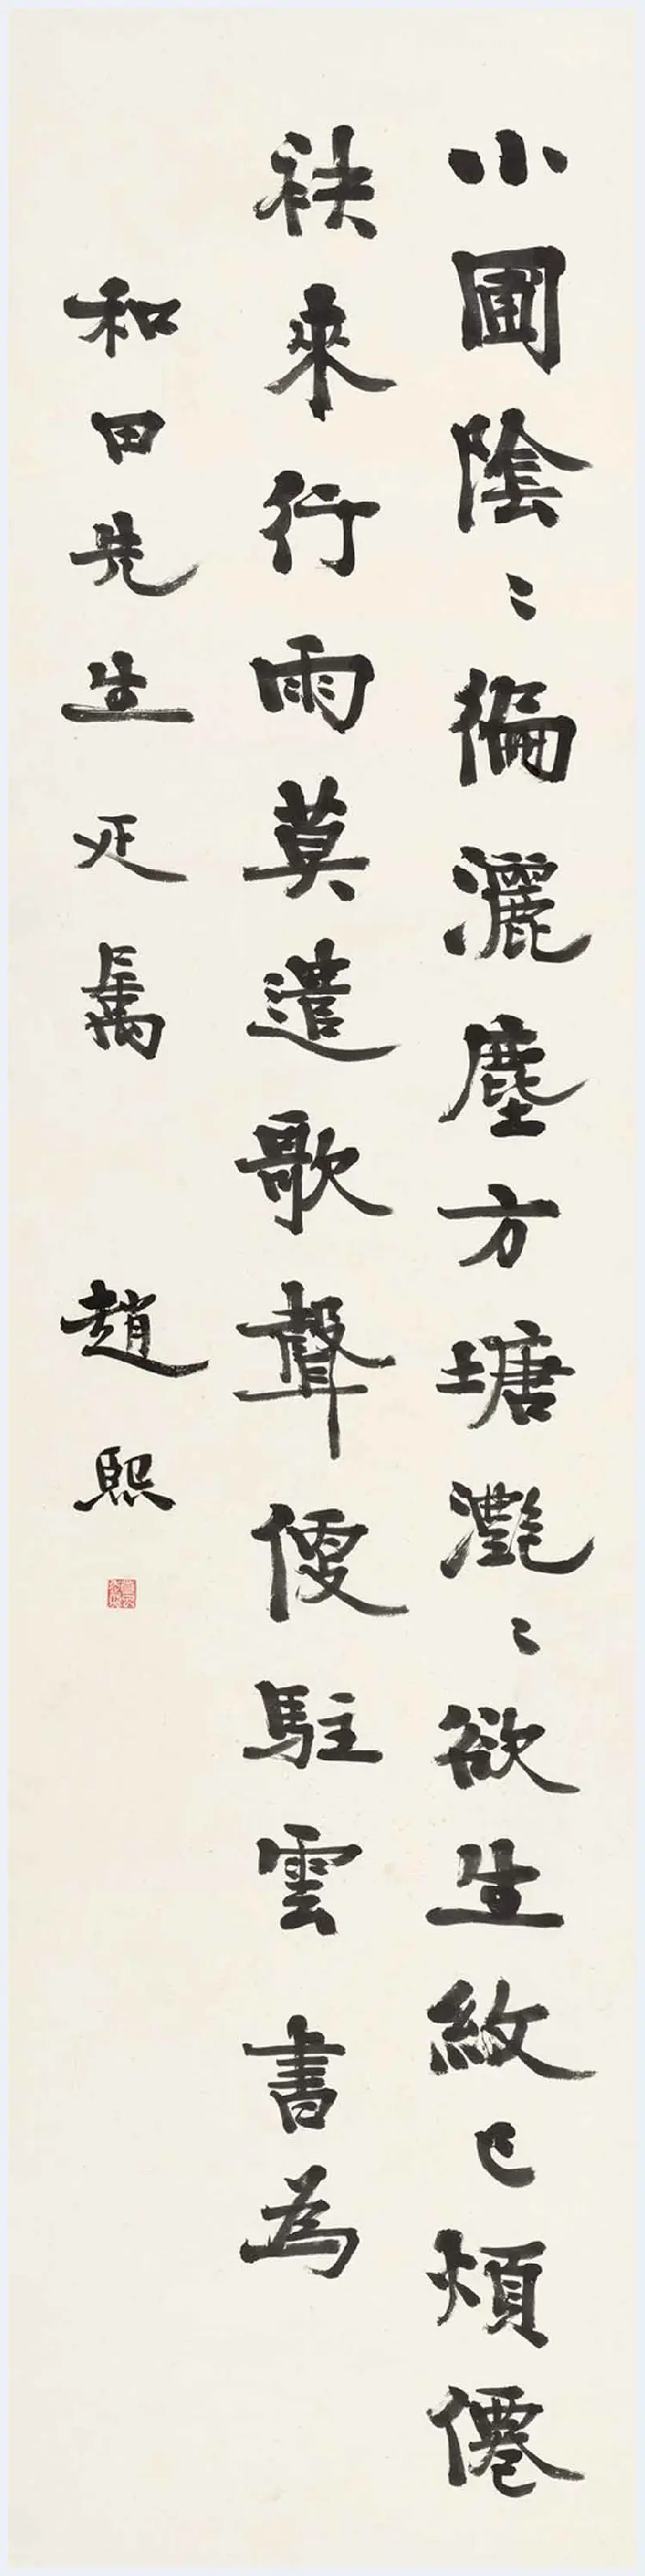 小圃陰〻徧灑塵方塘灧〻欲生紋已煩僊
袂來行雨莫遣歌聲便駐雲 書為
和田先生 正屬 趙熙